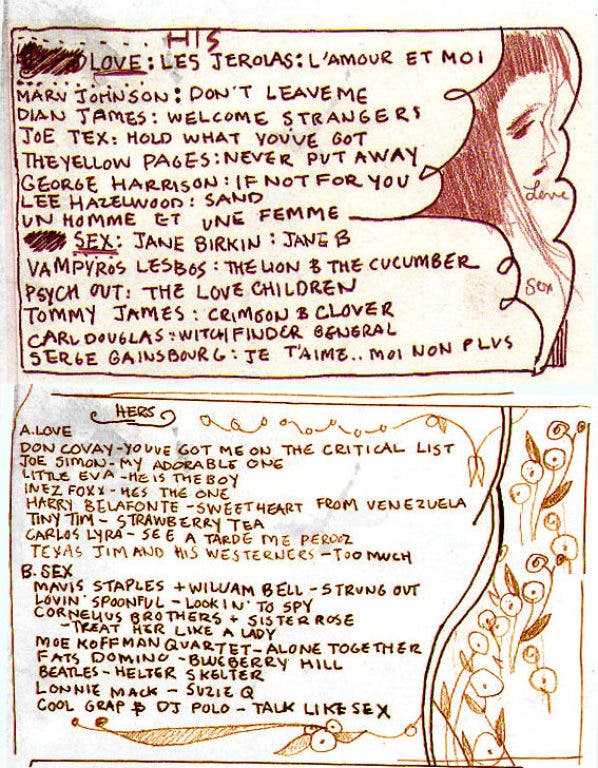 HIS
LOVE: LES JEROLAS: L'AMOUR ET MOI
MARV JOHNSON: DON'T LEAVE ME
DIAN JAMES: WELCOME STRANGERS
JOE TEX: HOLD WHAT YOUVE GOT
THE YELLOW PAGES: NEVER PUT AWAY
GEORGE HARRISON: IF NOT FOR YOU
LEE HAZELWOOD: SAND
UN HOMME ET UNE FEMME
SEX: JANE BIRKIN: JANE B
VAMPYROS LESBOS: THE LION & THE CUCUMBER
PSYCH OUT: THE LOVE CHILDREN
TOMMY JAMES: CRIMSON & CLOVER
CARL DOUGLAS: WITCH FINDER GENERAL
SERGE GAINSBOURG: JE T'AIME.. MOI NON PLUS
Love
Sex
HERS
A. LOVE
DON COVAY - YOUVE GOT ME ON THE CRITICAL LIST
JOE SIMON - MY ADORABLE ONE
LITTLE EVA - HE IS THE BOY
INEZ FOXX - HES THE ONE
HARRY BELAFONTE - SWEETHEART FROM VENEZUELA
TINY TIM - STRAWBERRY TEA
CARLOS LYRA - SE E A TARDE ME PERDOZ
TEXAS JIM AND HIS WESTERNERS - TOO MUCH
B. SEX
MAVIS STAPLES + WILLIAM BELL - STRUNG OUT
LOVIN' SPOONFUL - LOOKIN' TO SPY
CORNELIUS BROTHERS + SISTER ROSE
- TREAT HER LIKE A LADY
MOE KOFFMAN QUARTET - ALONE TOGETHER
FATS DOMINO - BLUEBERRY HILL
BEATLES - HELTER SKELTER
LONNIE MACK - SUZIE Q
COOL GRAP & DJ POLO - TALK LIKE SEX